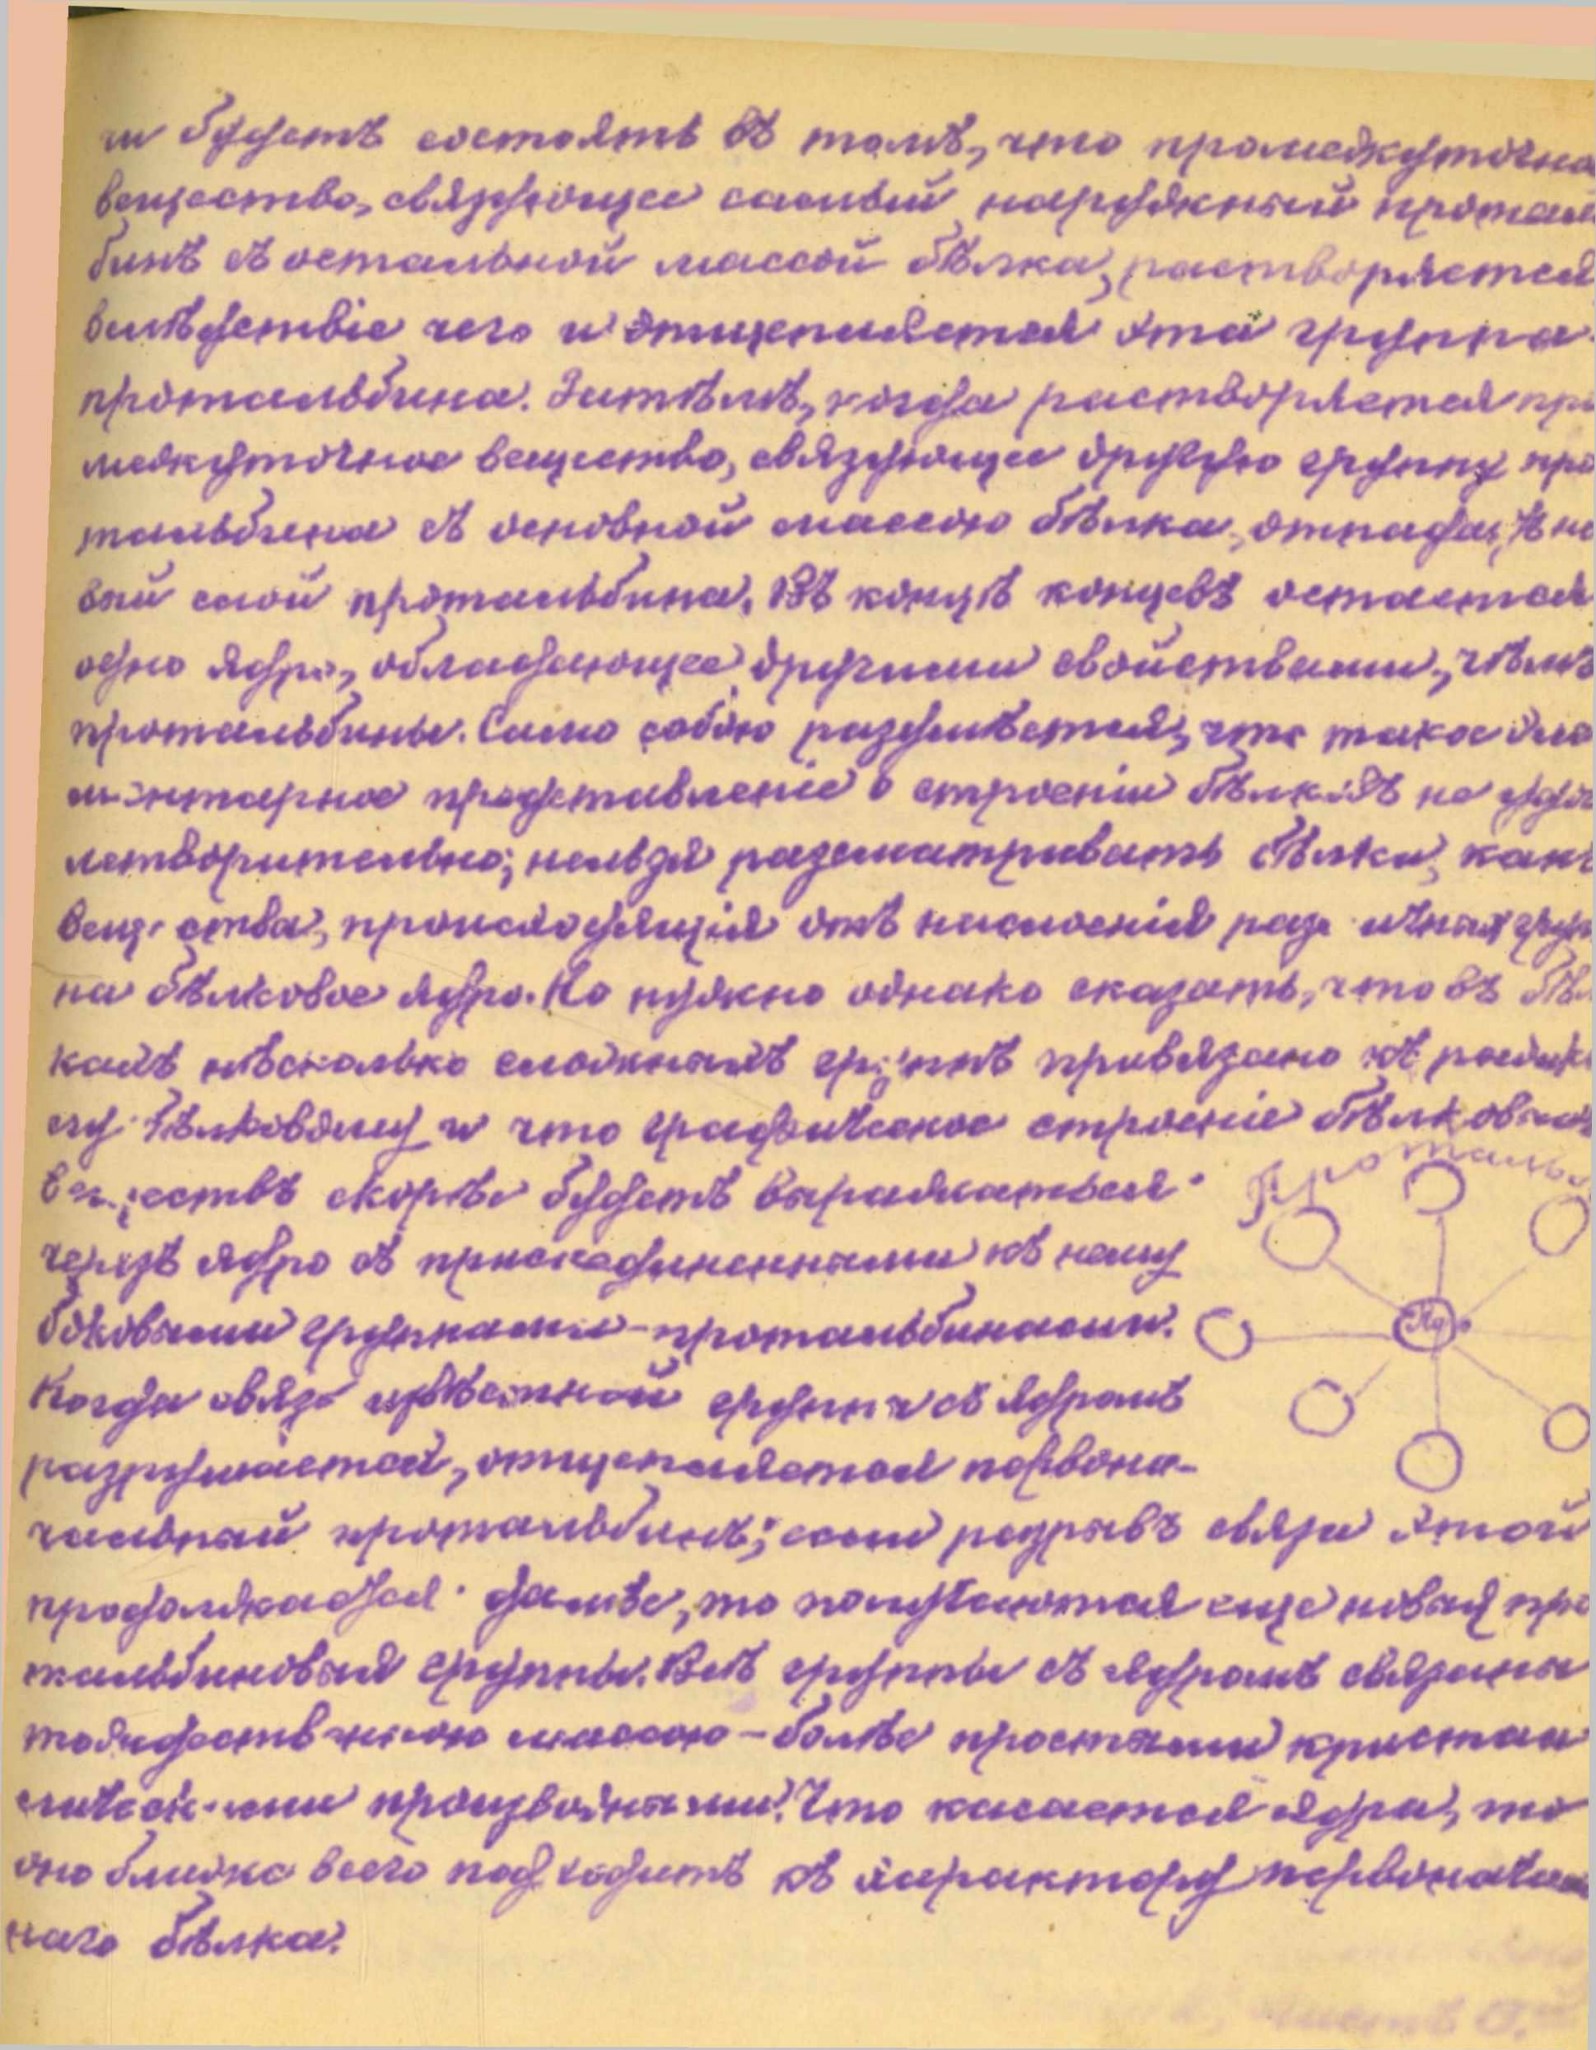 ш будетъ состоять въ томъ, что промежуточно
вещество, связующее самый наружный протал
бинъ съ остальной массой бѣлка, растворяется
вслѣдствіе чего и отщепляется эта группа
протальбина. Затѣмъ, когда растворяется про
межуточное вещество, связующее другую группу про
тальбина съ основной массою бѣлка, отпадаетъ но
вый слой протальбина. Въ концѣ концевъ остается
одно ядро, обладающее другими свойствами, чѣмъ
протальбины. Само собою разумѣется, что такое эле
ментарное представленіе о строеніи бѣлковъ не удов
летворительно; нельзя разсматривать бѣлки, какъ
вещества, происходящія отъ наслоенія различныхъ груп
на бѣлковое ядро. Но нужно однако сказать, что въ бѣл
кахъ нѣсколько сложныхъ группъ привязано къ
му бѣлковому и что графическое строеніе бѣлковыхъ
веществъ скорѣе будетъ выражаться
черезъ ядро съ присоединенными къ нему
боковыми группами-протальбинами.
Когда связь извѣстной группы съ ядромъ
разрушается, отщепляется первона-
чальный протальбинъ; если разрывъ связи этой
продолжается далѣе, то получаются еще новыя про
тальбиновыя группы. Всѣ группы съ ядромъ связаны
тождественною массою - болѣе простыми кристал
лическими производными. Что касается ядра, то
оно ближе всего подходитъ къ характеру первоначаль
наго бѣлка.
Протальб
Ядро